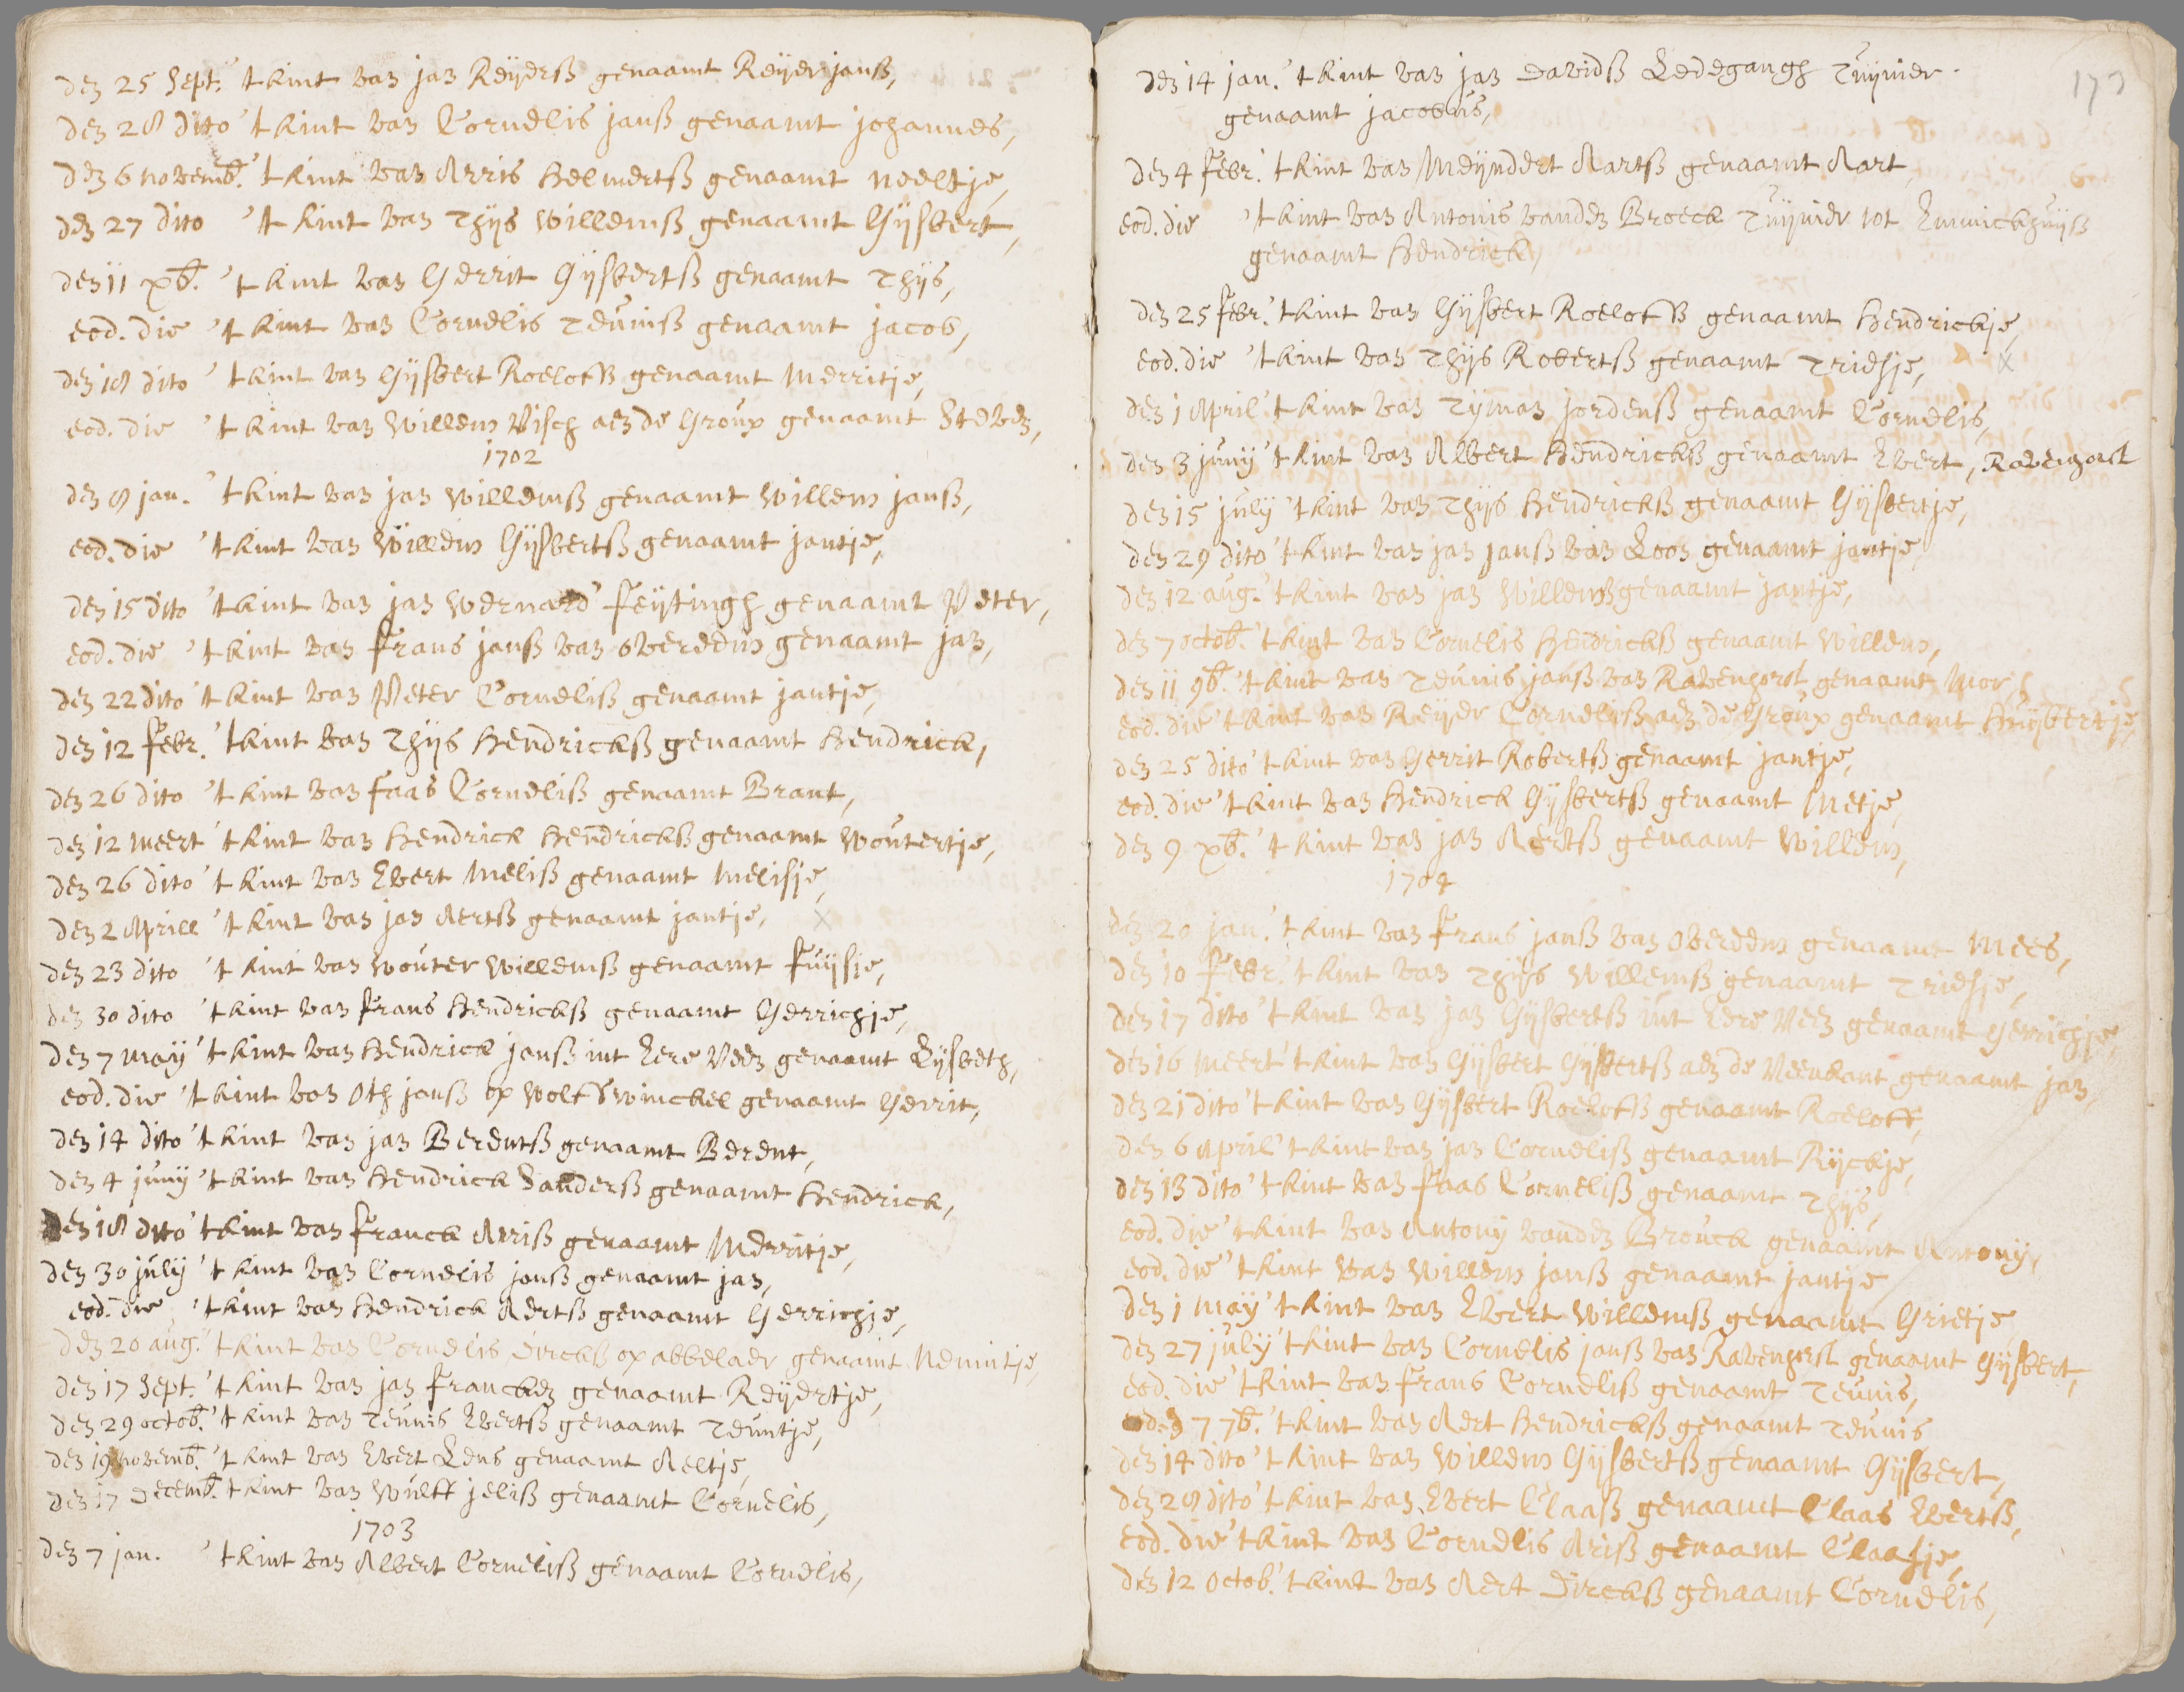 den 25 Sept. 't kint van jan Reyerss genaamt Reyer janss,
den 28 dito 't kint van Cornelis janss genaamt johannes,
den 6 novemb. 't kint van Arris Helmertss genaamt neeltje,
den 27 dito 't kint van Thijs Willemss genaamt Gijsbert,
den 11 xb. 't kint van Gerrit Gijsbertss genaamt Thijs,
eod. die 't kint van Cornelis Teuniss genaamt jacob,
den 18 dito 't kint van Gijsbert Roeloffs genaamt Merritje,
eod. die 't kint van Willem Visch aen de Group genaamt Steven,
1702
den 8 jan. 't kint van jan Willemss genaamt Willem janss,
eod. die 't kint van Willem Gijsbertss genaamt jantje,
den 15 dito 't kint van jan Wernard Feijtingh genaamt Peter,
eod. die 't kint van Frans janss van overeem genaamt jan,
den 22 dito 't kint van Peter Corneliss genaamt jantje,
den 12 Febr. 't kint van Thijs Hendrickss genaamt Hendrick,
den 26 dito 't kint van Faas Corneliss genaamt Brant,
den 12 meert 't kint van Hendrick Hendrickss genaamt Woutertje,
den 26 dito 't kint van Evert Meliss genaamt Melisje,
den 2 Aprill 't kint van jan Aertss genaamt jantje, x
den 23 dito 't kint van Wouter Willemss genaamt Fuijsje,
den 30 dito 't kint van Frans Hendrickss genaamt Gerrichje,
den 7 maÿ 't kint van Hendrick janss int Lere Veen genaamt Lijsbeth,
eod. die 't kint van Oth janss op Wolffswinckel genaamt Gerrit,
den 14 dito 't kint van jan Berentss genaamt Berent,
den 4 junij 't kint van Hendrick Sanderss genaamt Hendrick,
den 18 dito 't kint van Franck Arriss genaamt Merritje,
den 30 julij 't kint van Cornelis janss genaamt jan,
eod. die 't kint van Hendrick Aertss genaamt Gerrichje,
den 20 aug. 't kint van Cornelis Dirckss op abbelaer genaamt Nemintje,
den 17 Sept. 't kint van jan Francken genaamt Reijertje,
den 29 octob. 't kint van Teunis Evertss genaamt Teuntje,
den 19 novemb. 't kint van Evert Lens genaamt Aeltje,
den 17 Decemb. 't kint van Wulff jeliss genaamt Cornelis,
1703
den 7 jan. 't kint van Albert Corneliss genaamt Cornelis,
den 14 jan. 't kint van jan Davidss Ledegangh Tuijnier
genaamt jacobus,
den 4 Febr. 't kint van Meijndert Aartss genaamt Aart,
eod. die 't kint van Antonis vanden Broeck Tuijnier tot Emmickhuijss
genaamt Hendrick,
den 25 Febr. 't kint van Gijsbert Roeloffs genaamt Hendrickje,
eod. die 't kint van Thijs Robertss genaamt Triesje, x
den 1 April 't kint van Tijman jordenss genaamt Cornelis,
den 3 junij 't kint van Albert Hendrickss genaamt Evert, Ravenhorst
den 15 julij 't kint van Thijs Hendrickss genaamt Gijsbertje,
den 29 dito 't kint van jan janss van Loon genaamt jantje,
den 12 aug. 't kint van jan Willemss genaamt jantje,
den 7 octob. 't kint van Cornelis Hendrickss genaamt Willem,
den 11 9b. 't kint van Teunis janss van Ravenhorst genaamt
eod. die 't kint van Reijer Corneliss aen de Group genaamt Huijbertje,
den 25 dito 't kint van Gerrit Robertss genaamt jantje,
eod. die 't kint van Hendrick Gijsbertss genaamt Metje,
den 9 xb. 't kint van jan Aertss genaamt Willem,
1704
den 20 jan. 't kint van Frans janss van Overeem genaamt Mees,
den 10 Febr. 't kint van Thijs Willemss genaamt Triesje,
den 17 dito 't kint van jan Gijsbertss int Lere Veen genaamt Gerrichje,
den 16 meert 't kint van Gijsbert Gijsbertss aen de Veenkant genaamt jan,
den 21 dito 't kint van Gijsbert Roeloffs genaamt Roeloff,
den 6 April 't kint van jan Corneliss genaamt Rijckje,
den 13 dito 't kint van Faas Corneliss genaamt Thijs,
eod. die 't kint van Antonij vanden Brouck genaamt Antonij,
eod. die 't kint van Willem janss genaamt jantje,
den 1 maÿ 't kint van Evert Willemss genaamt Grietje,
den 27 julij 't kint van Cornelis janss van Ravenhorst genaamt Gijsbert,
eod. die 't kint van Frans Corneliss genaamt Teunis,
7 7b. 't kint van Aert Hendrickss genaamt Teunis
den 14 dito 't kint van Willem Gijsbertss genaamt Gijsbert,
den 28 dito 't kint van Evert Claass genaamt Claas Evertss,
eod. die 't kint van Cornelis Ariss genaamt Claasje,
den 12 Octob. 't kint van Aert Dirckss genaamt Cornelis,